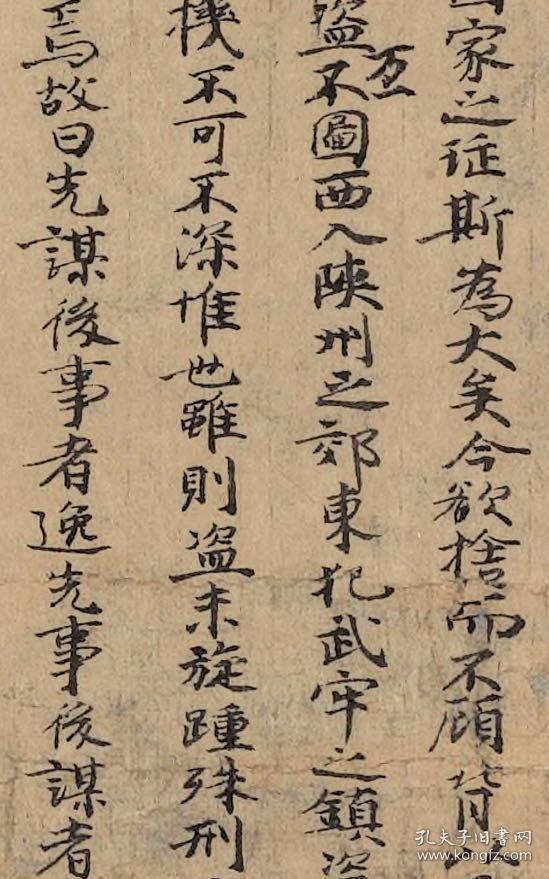 家之斯為大矣今欲捨而不顧背
盜万一不圖西入陝州之郊東犯武牢之鎮盜
機不可不深惟也雖則盜未旋踵殊刑
焉故曰先謀後事者逸先事後謀者
孔夫子旧书网
kongfz.com